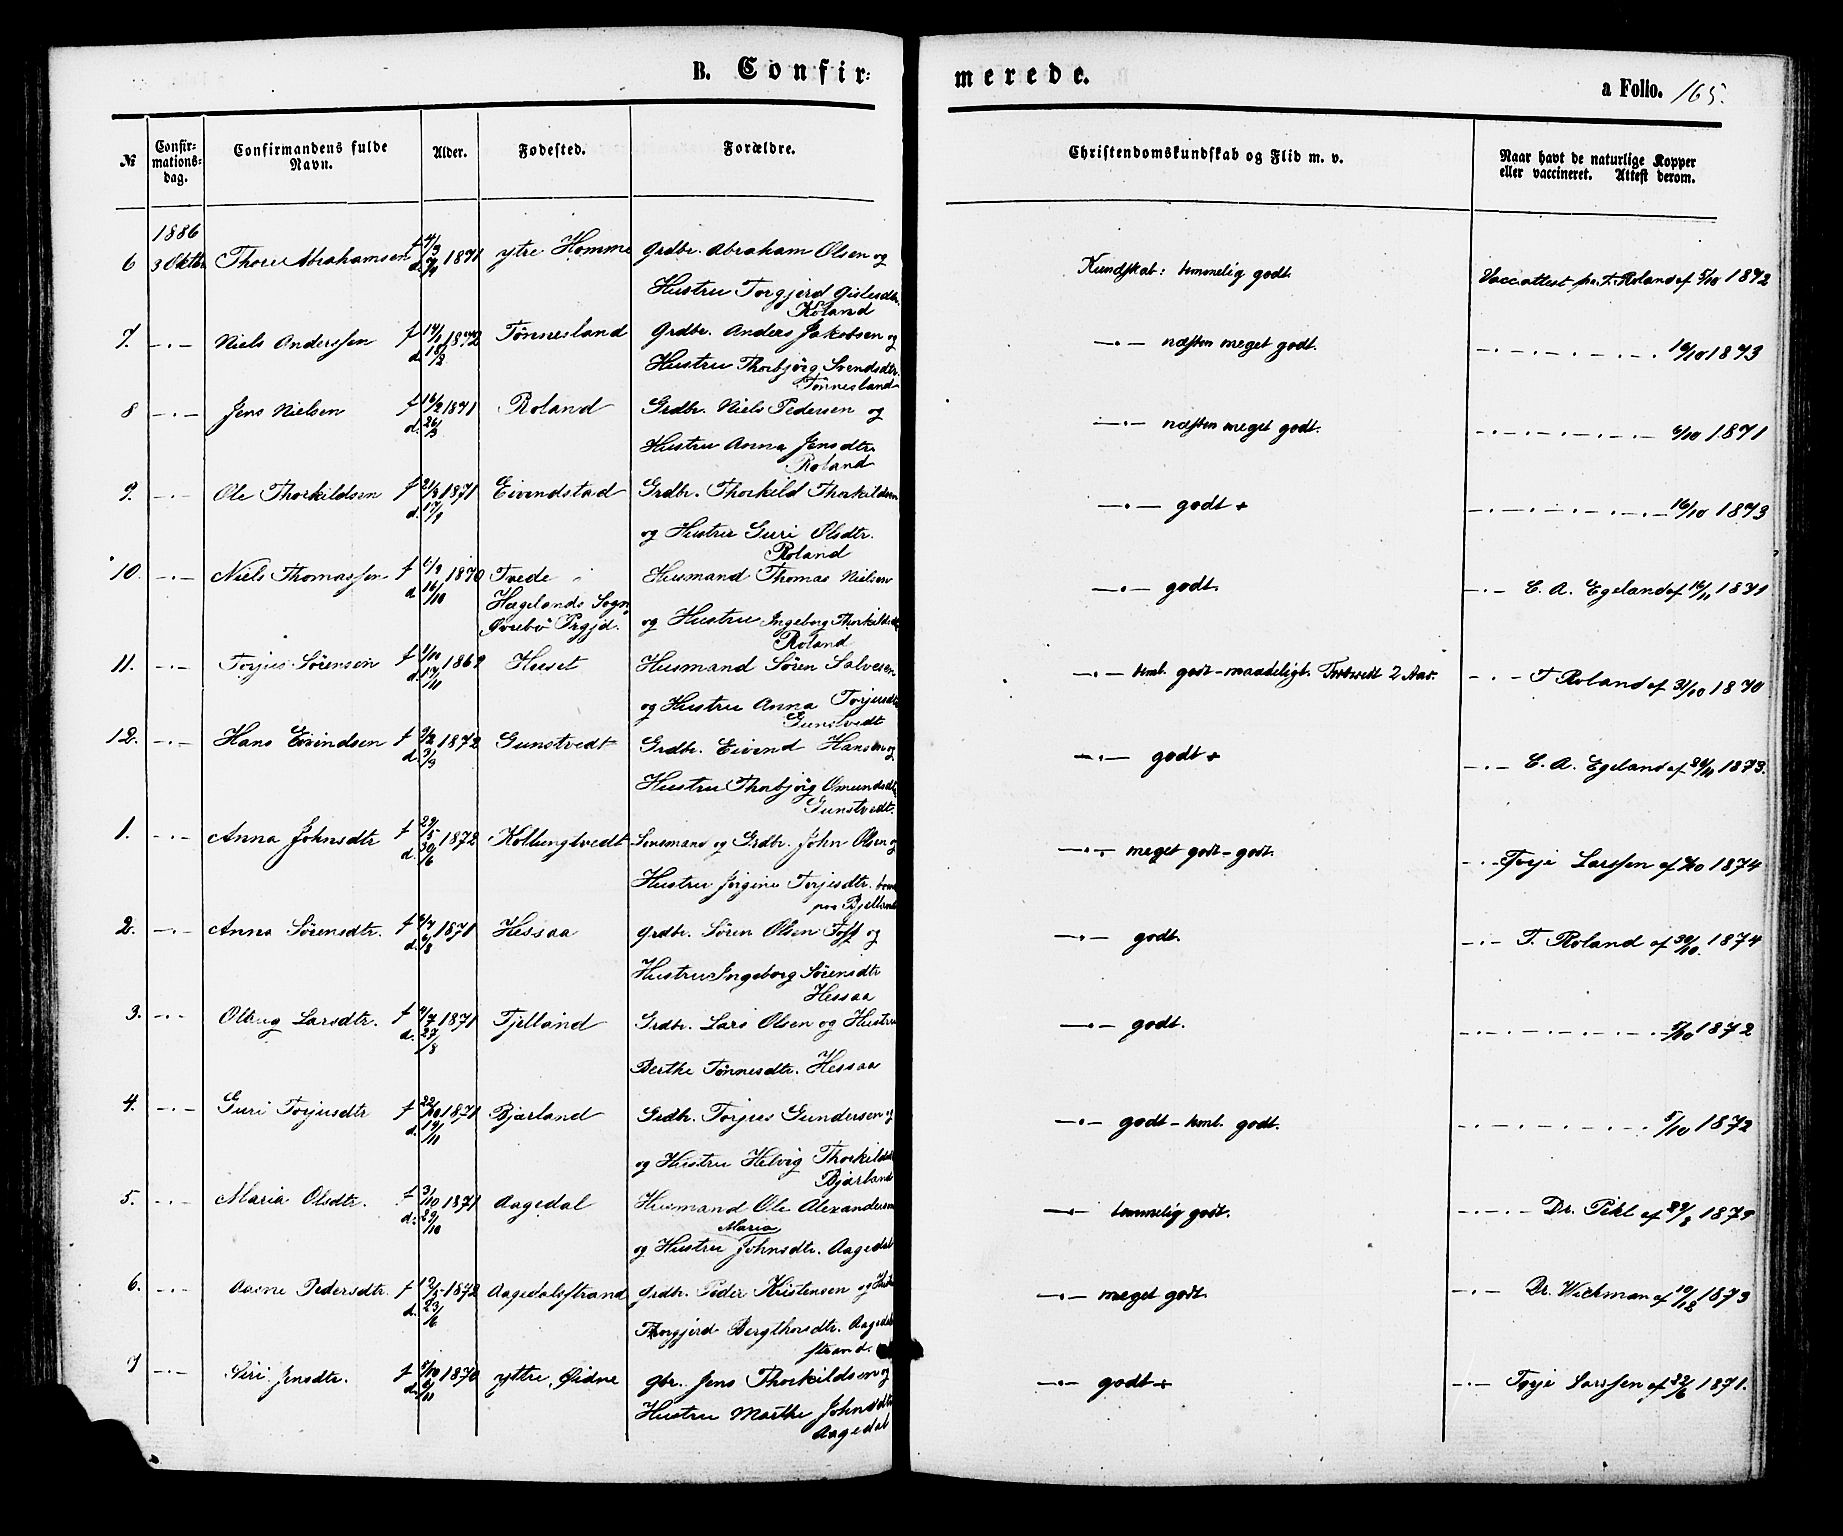 B. Confir-
merede.
a Folio. 165.
№
Confir-
mations-
dag.
Confirmandens fulde
Navn.
Alder.
Fødested.
Forældre.
Christendomskundskab og Flid m. v.
Naar havt de naturlige Kopper
eller vaccineret. Attest derom.
1886
6 3 Oktbr Thore Abrahamsen f 4/3 1871 ytre Homme Grdbr. Abraham Olsen og
Hustru Torgjerd Gislesdtr.
Roland
Kundskab: temmelig godt. Vaccattest fra T. Roland af 5/10 1872
7. -.- Niels Anderssen f 14/2 1872 Tønnesland Grdbr. Anders Jakobsen og
d. 18/2 Hustru Thorbjørg Svendsdtr.
Tønnesland
-.- næsten meget godt. -.-.-.-.- 16/10 1873
8 -.- Jens Nielsen f 16/2 1871 Roland Grdbr. Niels Pedersen og
d. 26/3 Hustru Anna Jensdtr.
Roland
-.- næsten meget godt. -.-.-.-.- 6/10 1871
9. -.- Ole Thorkildsen f 1871 Eivindstad Grdbr. Thorkild Thorkildsen
d. 17/9 og Hustru Guri Olsdtr.
Roland
-.- godt + -.-.-.-.- 16/10 1873
10. -.- Niels Thomassen f 1/9 1870 Tvede i Husmand Thomas Nielsen
d. 16/10 Hægelands Sogn
Øvrebø Prgjd. og Hustru Ingeborg Thorkildsd.
Roland
-.- godt. -.- C. A. Egeland af 16/11 1871
11. -.- Torjus Sørensen f 2/10 1869 Huset Husmand Søren Salvesen
d. 17/11 og Hustru Anna Torjusdt
Gunstvedt
-.- teml. godt - maadeligt. Forberedt 2 Aar. -.- T Roland af 31/10 1870
12. -.- Hans Eivindsen f 2/2 1872 Gunstvedt Grdbr. Eivind Hansen og
d. 3/3 Hustru Thorbjørg Omundsdt
Gunstvedt.
-.- godt + -.- C. A. Egeland af 1873.
1. -.- Anna Johnsdtr f 29/5 1872 Kollungtvedt Lensmand og Grdbr. John Olsen og
d. 30/6 Hustru Jørgine Torjesdtr.
paa Bjelland
-.- meget godt - godt. -.- Torje Larssen af 1874
2. -.- Anna Sørensdtr. f 1871 Hessaa Grdbr. Søren Olsen Foss og
d. 6/8 Hustru Ingeborg Sørensdtr
Hessaa
-.- godt. -.- T. Roland af 30/10 1874
3. -.- Oltrug Larsdtr. f 4/7 1871 Fjelland Grdbr. Lars Olsen og Hustru
d. 27/8 Berthe Tønnesdtr. Hessaa
-.- godt. -.-.-.-.- 5/10 1872
4. -.- Guri Torjusdtr f 22/10 1871 Bjærland Grdbr. Torjus Gundersen og
d. 19/11 og Hustru Helvig Thorkildsd
Bjærland
-.- godt - teml. godt. -.-.-.-.- 5/10 1872
5. -.- Maria Olsdtr. f 3/10 1871 Aagedal Husmand Ole Alexandersen
Maria
d. 29/10 og Hustru Johnsdtr. Aagedal
-.- temmelig godt. -.- Dr. Pihl af 29/8 1875
6. -.- Aasne Pedersdtr. f 12/5 1872 Aagedalsstrand Grdbr. Peder Kristensen og Hustru
d. 23/6 Thorgjerd Bergthorsdtr. Aagedal
strand.
-.- meget godt. -.- Dr. Wickman af 19/12 1873
7 -.- Siri Jensdtr. f 5/10 1870 yttre Øidne gbr. Jens Thorkildsen og
d. 6/11 Hustru Marthe Johnsdtr
Aagedal
-.- godt + -.- Torje Larssen af 22/6 1871.